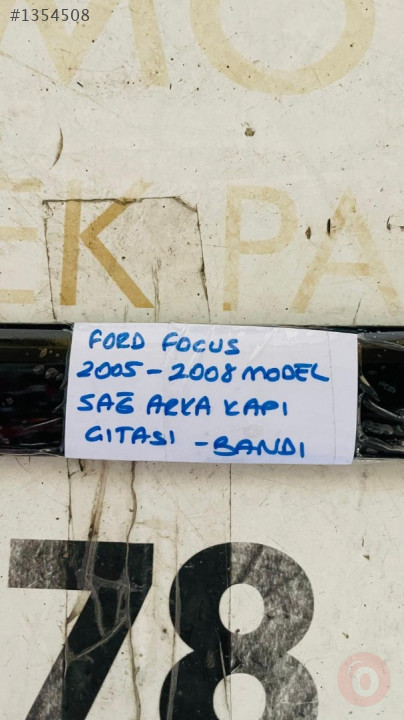 #1354508
MO
EK PA
FORD FOCUS
2005-2008 MODEL
SAĞ ARKA KAPI
GITASI -BANDI
78